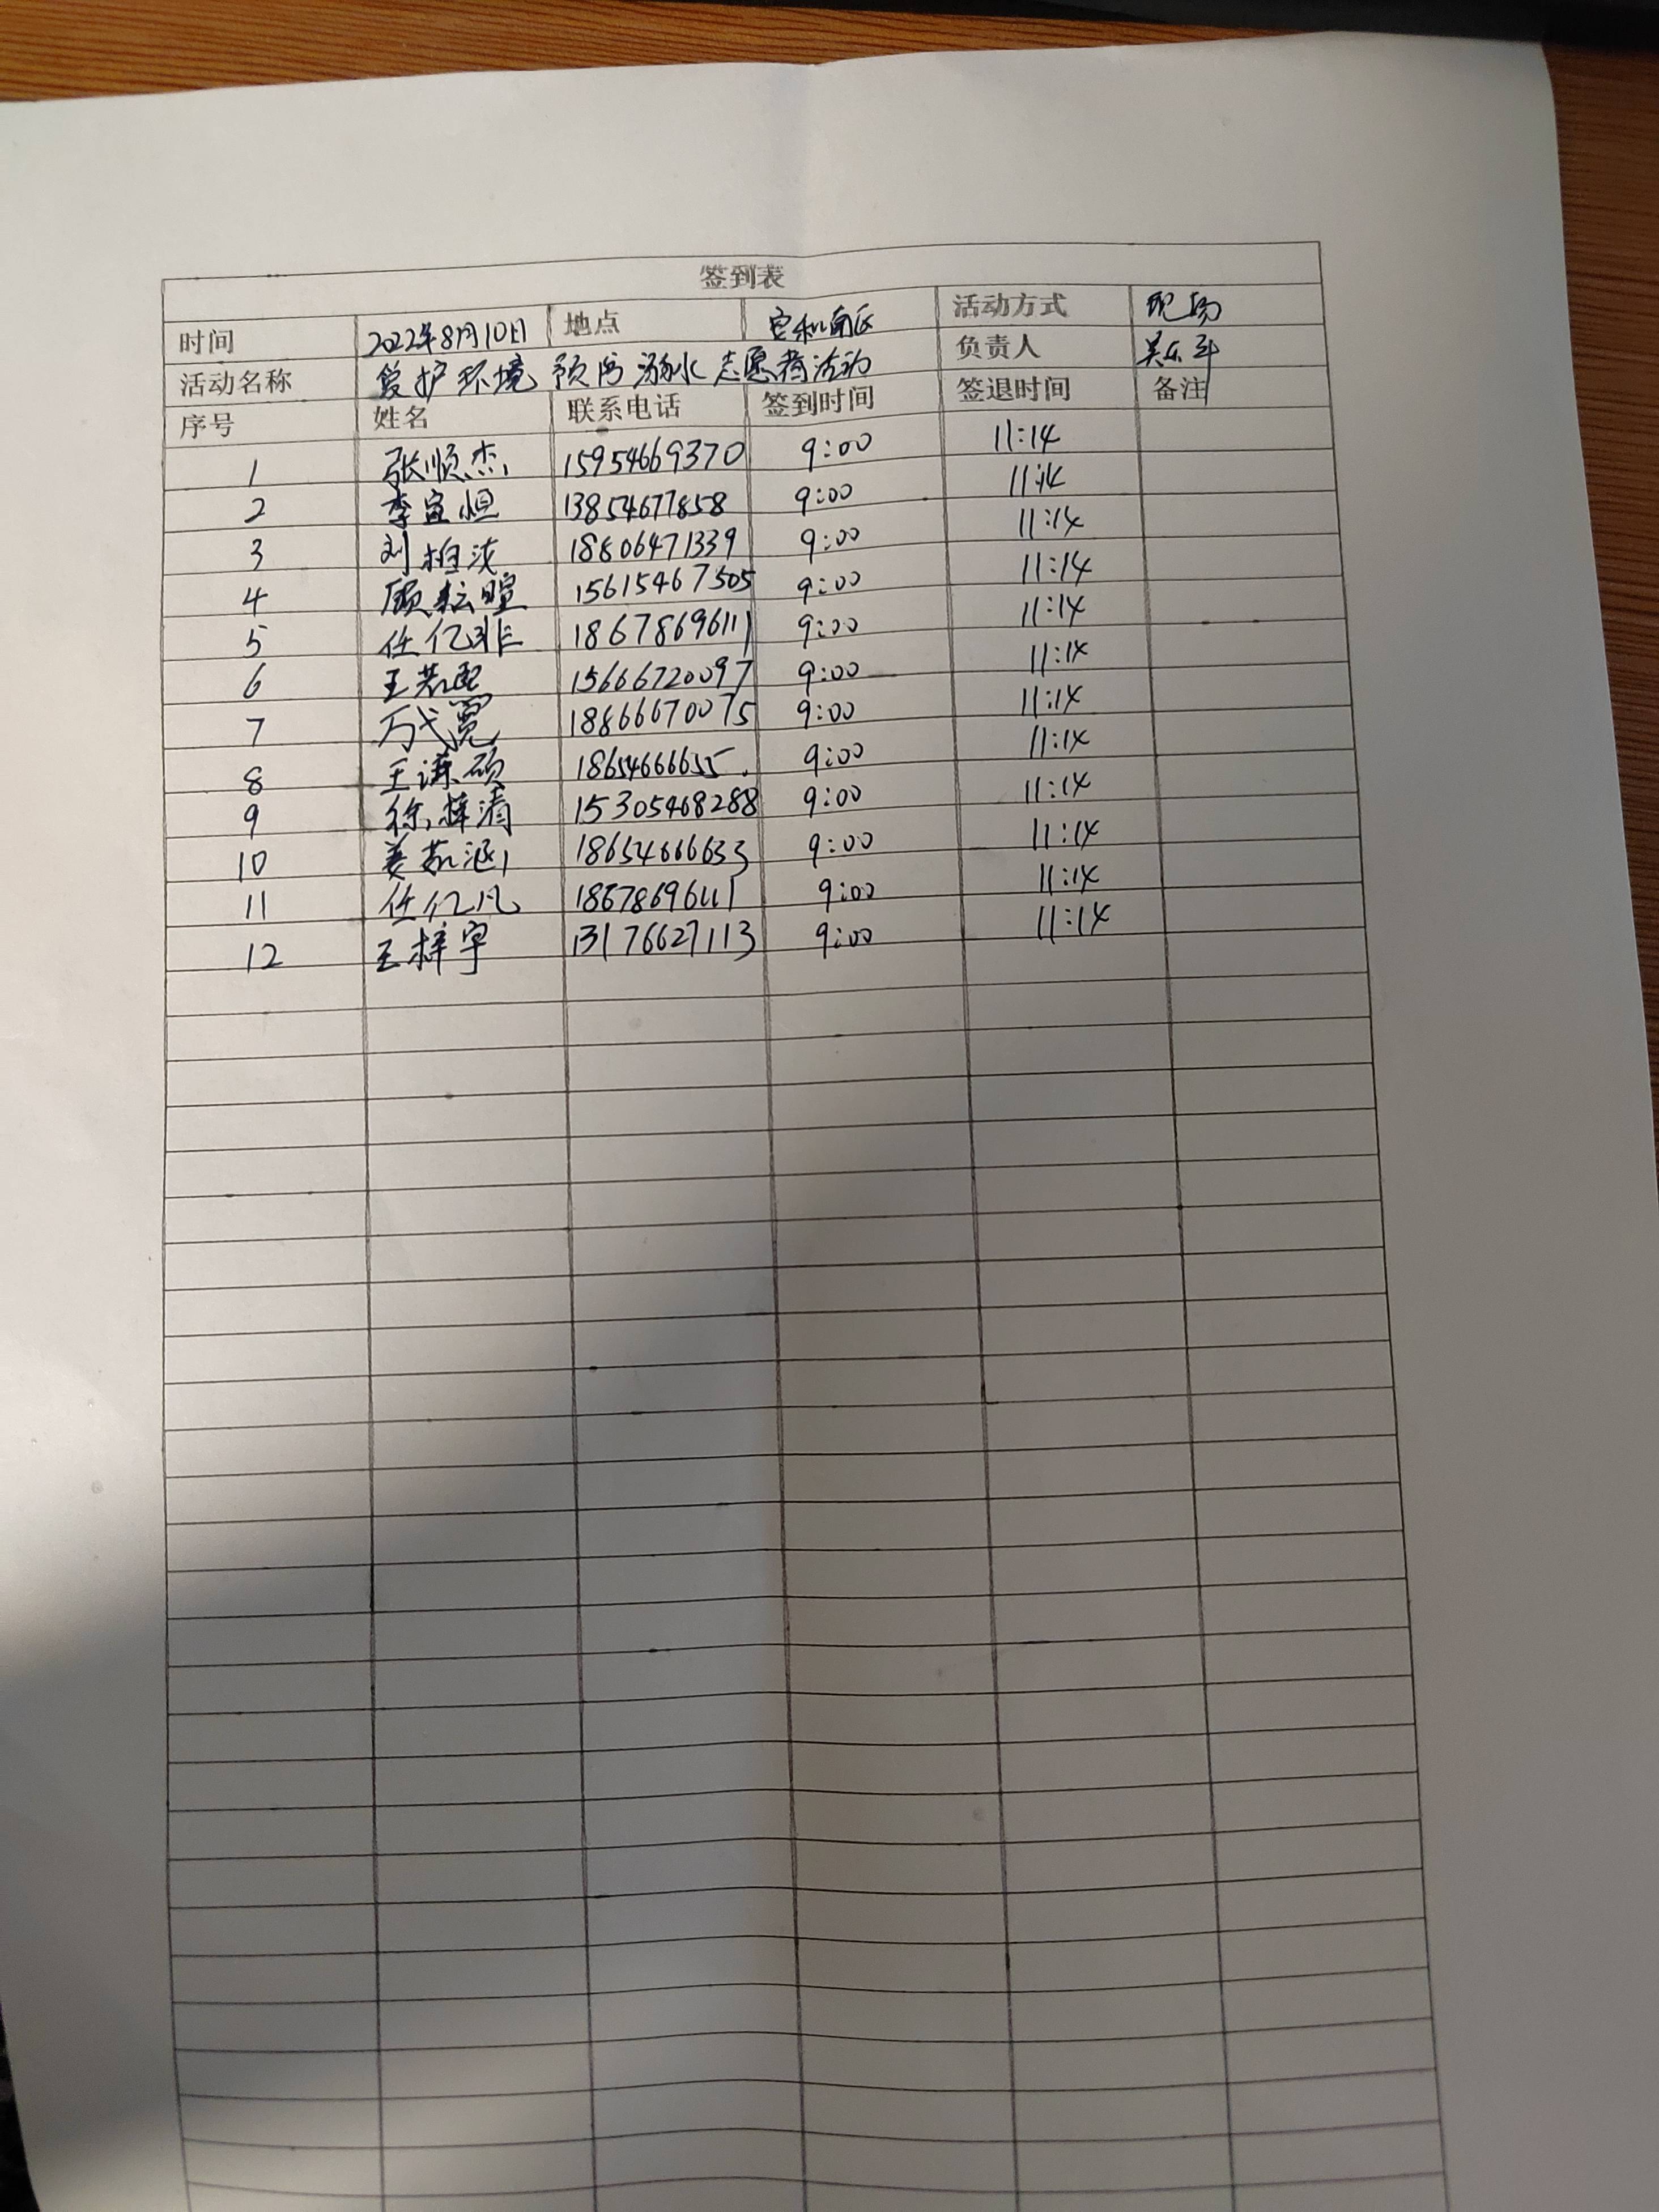 签到表
时间 2022年8月10日 地点 安和南区 活动方式 现场
活动名称 爱护环境 预防溺水志愿者活动 负责人
序号 姓名 联系电话 签到时间 签退时间 备注
1 张顺杰 15954669370 9:00 11:14
2 李宜恒 13854677858 9:00 11:14
3 刘柏 18806471339 9:00 11:14
4 顾耘暄 15615467505 9:00 11:14
5 任亿非 18678696111 9:00 11:14
6 王若熙 15666720097 9:00 11:14
7 万弋宽 18866670075 9:00 11:14
8 王谦硕 1865466655 9:00 11:14
9 徐梓清 15305468288 9:00 11:14
10 姜凯涵 18654666633 9:00 11:14
11 任亿凡 18678696111 9:00 11:14
12 王梓宇 13176627113 9:00 11:14